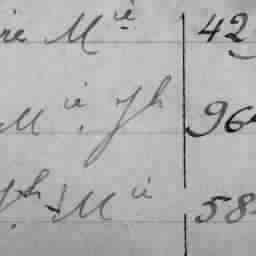 ire Mie 42
Mie. Jh 96
Jh. Mie 58